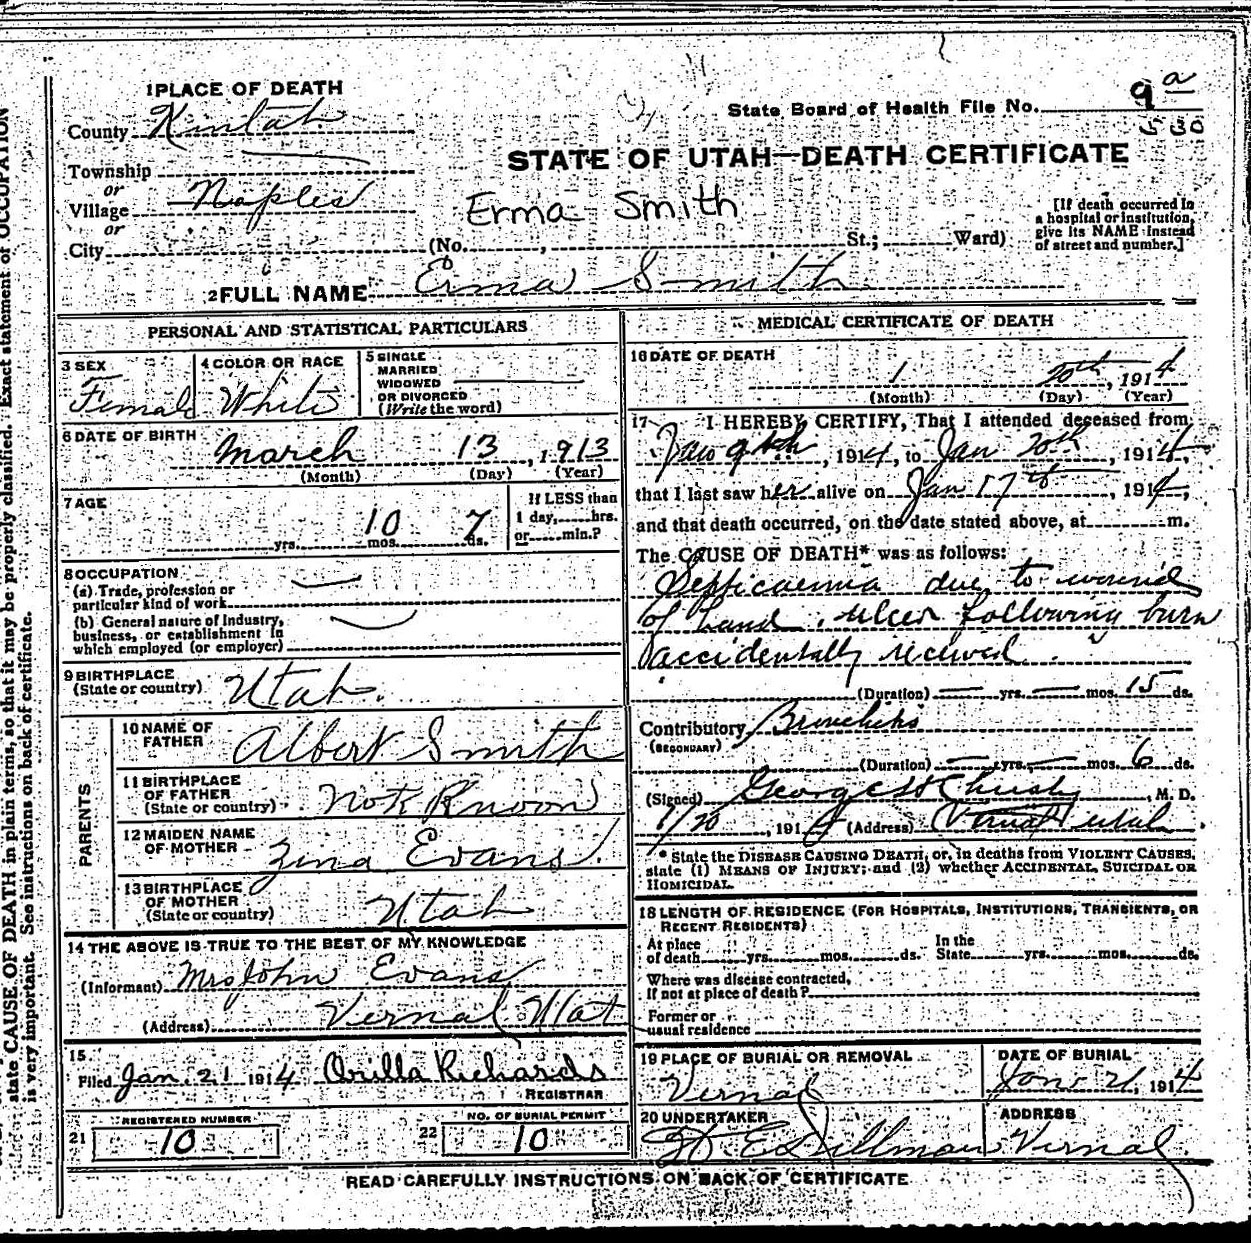 1 PLACE OF DEATH
State Board of Health File No. 9a
530
County
STATE OF UTAH—DEATH CERTIFICATE
Township
or
Village Naples
or
City
Erma Smith
(No. , St.; Ward)
[If death occurred in
a hospital or institution,
give its NAME instead
of street and number.]
2 FULL NAME Erma Smith
PERSONAL AND STATISTICAL PARTICULARS
3 SEX
Female
4 COLOR OR RACE
White
5 SINGLE
MARRIED
WIDOWED
OR DIVORCED
(Write the word)
6 DATE OF BIRTH
March 13, 1913
(Month) (Day) (Year)
7 AGE
yrs. 10 mos. 7 ds.
If LESS than
1 day, hrs.
or min.?
8 OCCUPATION
(a) Trade, profession or
particular kind of work
(b) General nature of Industry,
business, or establishment in
which employed (or employer)
9 BIRTHPLACE
(State or country) Utah.
PARENTS
10 NAME OF
FATHER Albert Smith
11 BIRTHPLACE
OF FATHER
(State or country) Not Knoon
12 MAIDEN NAME
OF MOTHER Zina Evans.
13 BIRTHPLACE
OF MOTHER
(State or country) Utah
14 THE ABOVE IS TRUE TO THE BEST OF MY KNOWLEDGE
(Informant) Mrs John Evans
(Address) Vernal Utat
15
Filed Jan. 21 1914 Orilla Richards
REGISTRAR
21 REGISTERED NUMBER
10
22 NO. OF BURIAL PERMIT
10
MEDICAL CERTIFICATE OF DEATH
16 DATE OF DEATH
1 20th, 1914
(Month) (Day) (Year)
17 I HEREBY CERTIFY, That I attended deceased from
Jan 9th, 1914, to Jan 20th, 1914,
that I last saw her alive on Jan 17th, 1914,
and that death occurred, on the date stated above, at m.
The CAUSE OF DEATH* was as follows:
Septicaemia due to wound
of hand, ulcer following burn
accidentally received.
(Duration) yrs. mos. 15 ds.
Contributory Bronchitis
(SECONDARY)
(Duration) yrs. mos. 6 ds.
(Signed) George H Christy, M. D.
1/20, 1914 (Address) Vernal Utah
* State the DISEASE CAUSING DEATH, or, in deaths from VIOLENT CAUSES,
state (1) MEANS OF INJURY; and (2) whether ACCIDENTAL, SUICIDAL OR
HOMICIDAL.
18 LENGTH OF RESIDENCE (FOR HOSPITALS, INSTITUTIONS, TRANSIENTS, OR
RECENT RESIDENTS)
At place
of death yrs. mos. ds.
In the
State yrs. mos. ds.
Where was disease contracted,
if not at place of death?
Former or
usual residence
19 PLACE OF BURIAL OR REMOVAL
Vernal
DATE OF BURIAL
Jan 21, 1914
20 UNDERTAKER
Dillman
ADDRESS
Vernal
READ CAREFULLY INSTRUCTIONS ON BACK OF CERTIFICATE
state CAUSE OF DEATH in plain terms, so that it may be properly classified. Exact statement of OCCUPATION
is very important. See instructions on back of certificate.